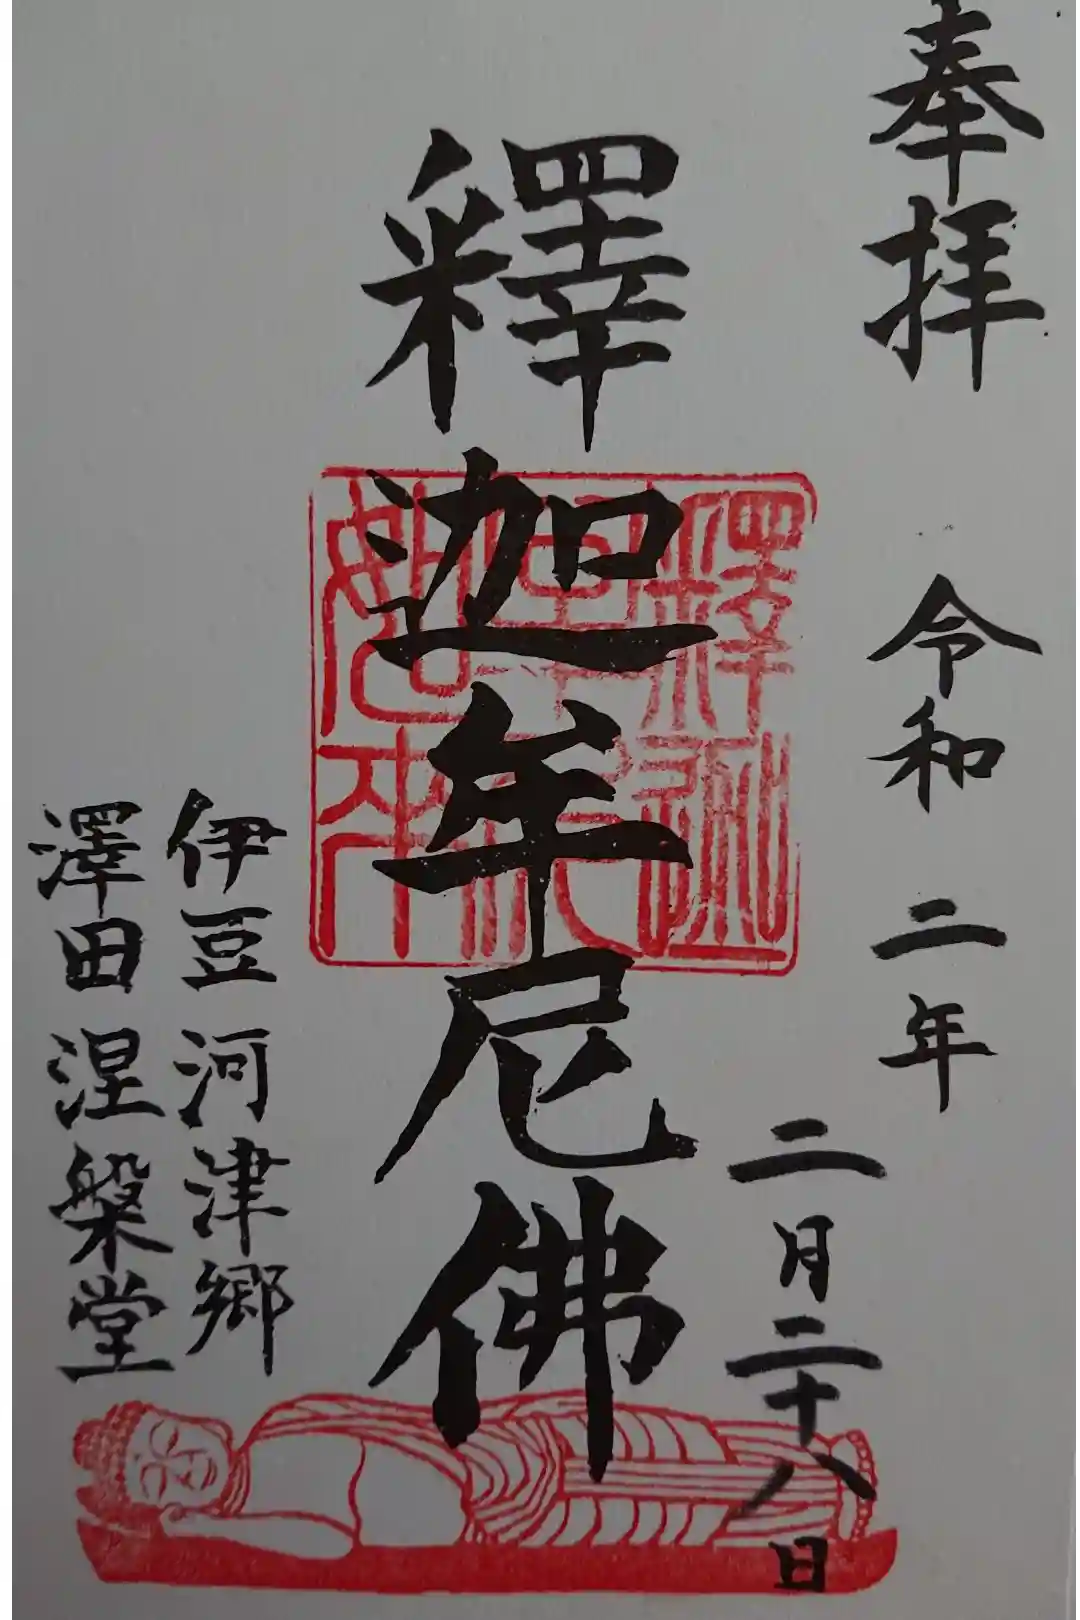 奉拝
令和二年
二月二十八日
釋迦牟尼佛
伊豆河津郷
澤田涅槃堂